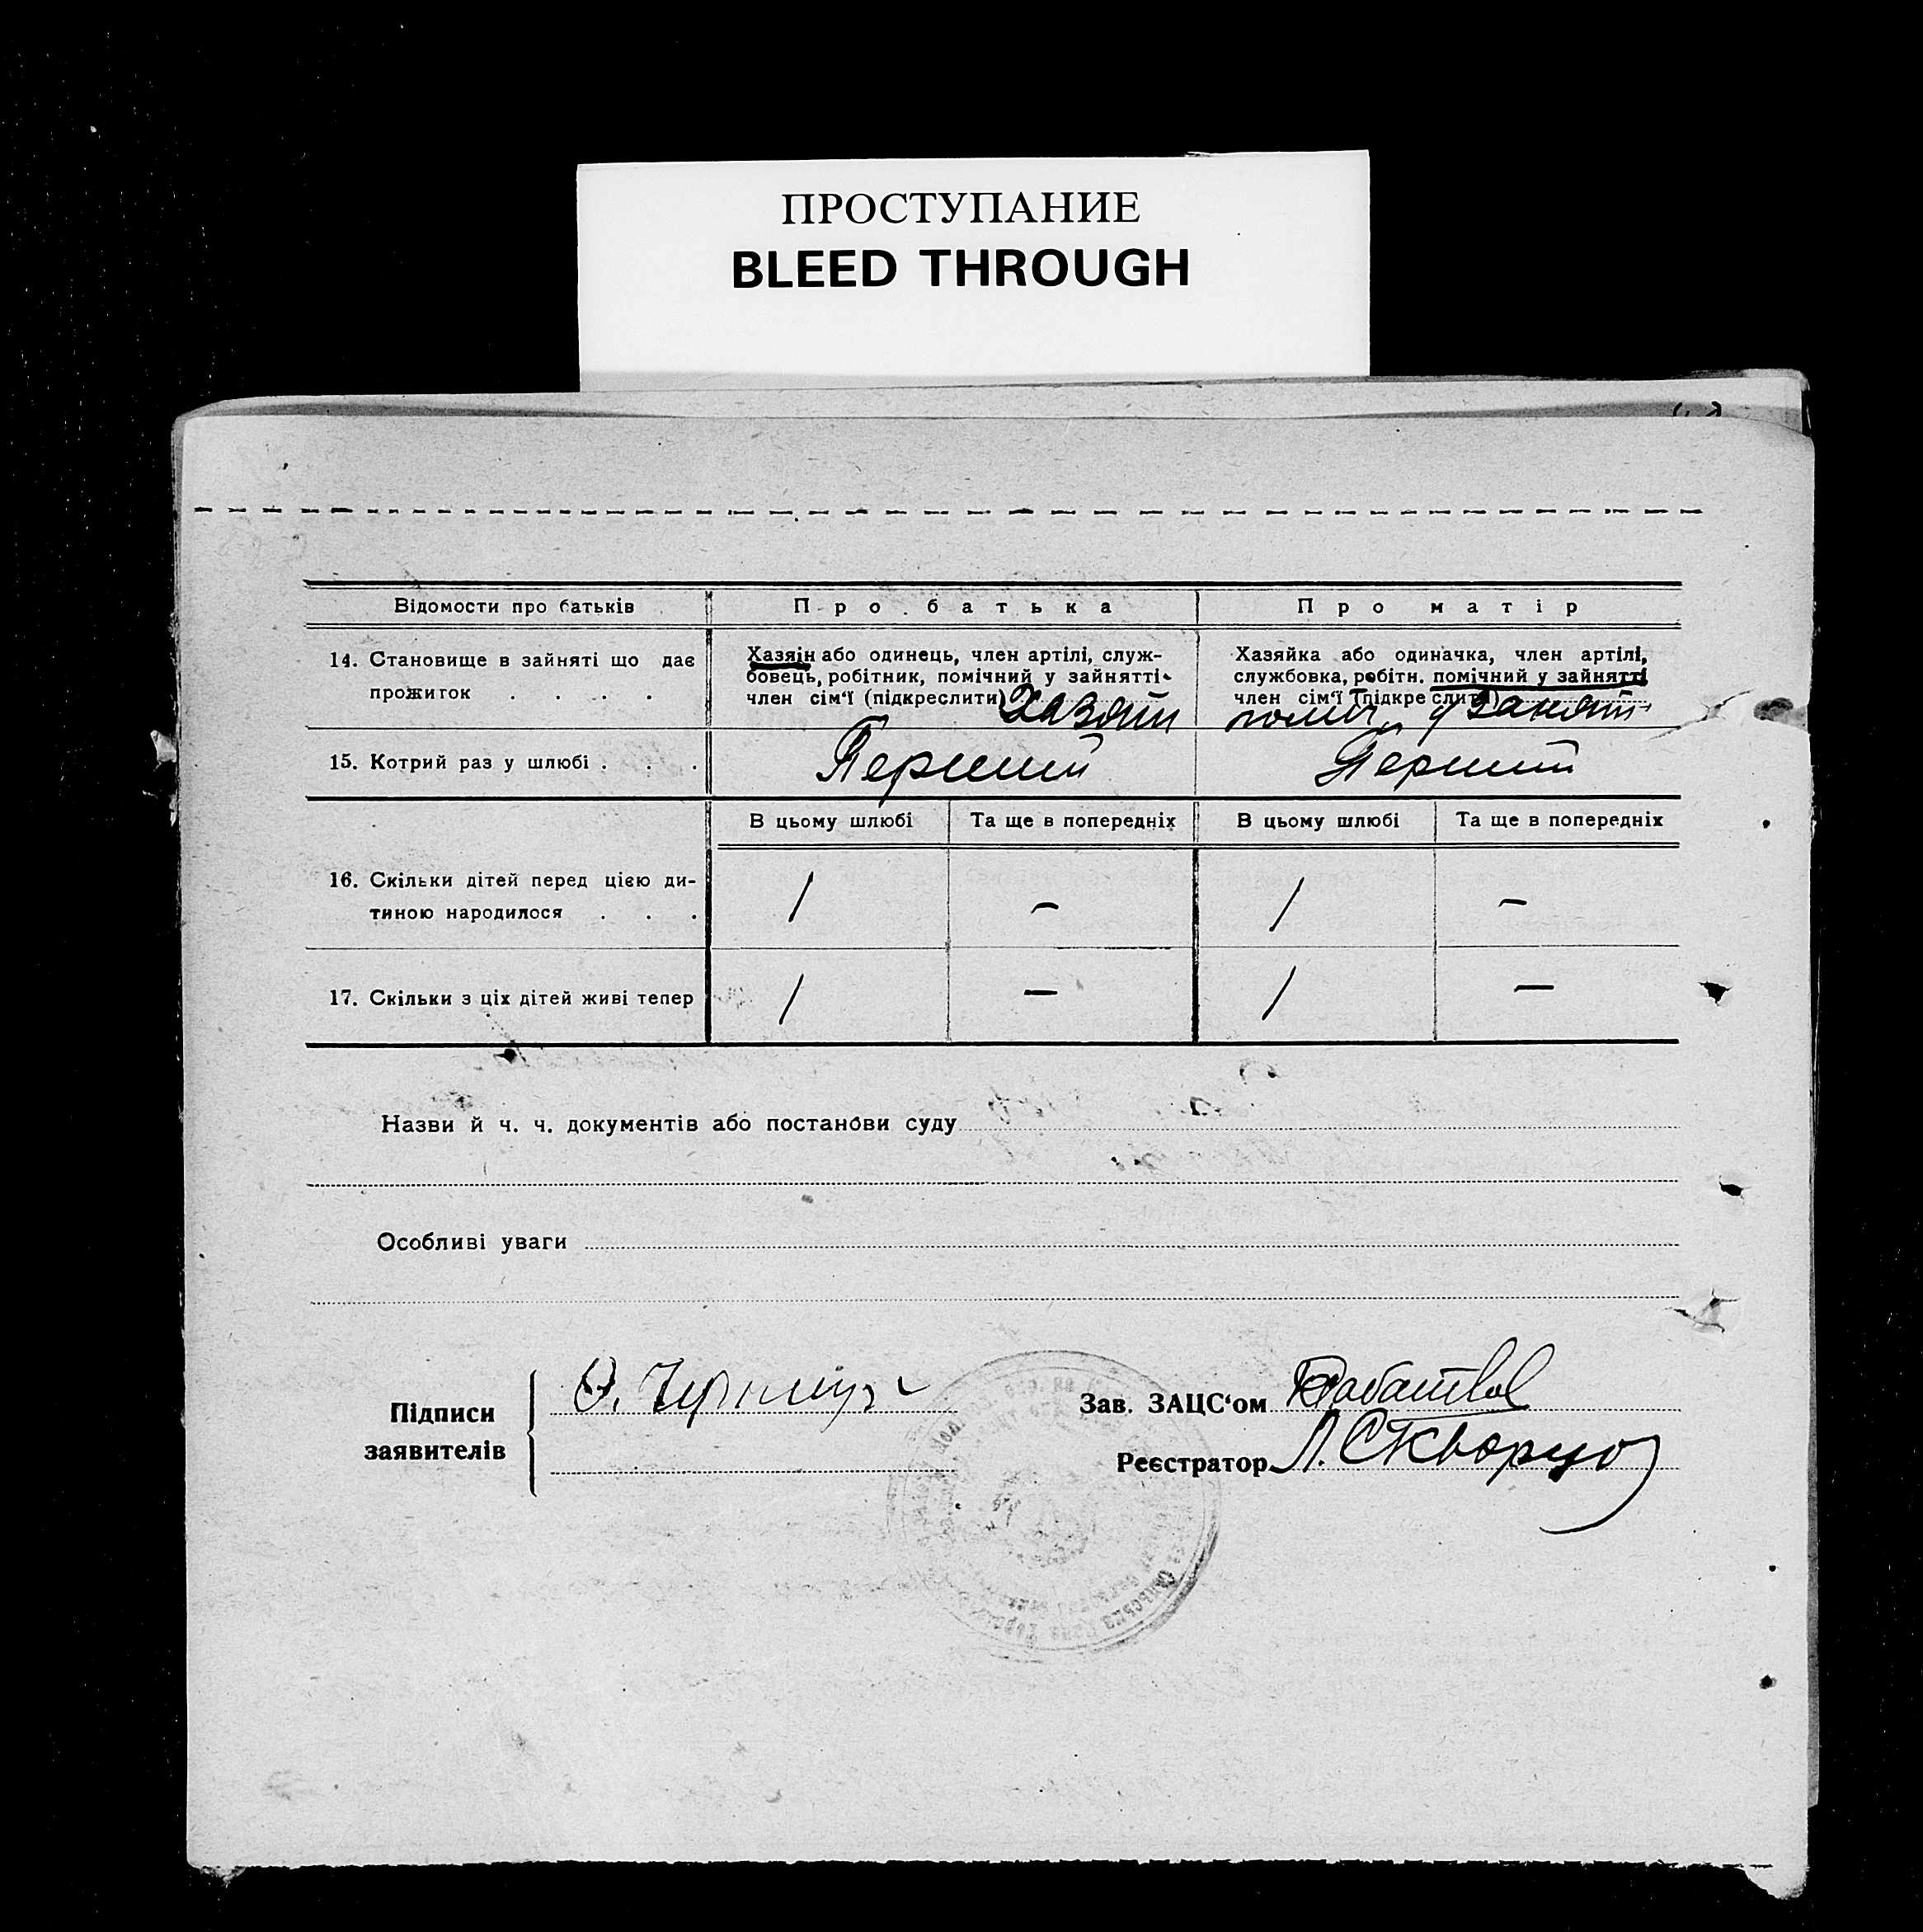 ПРОСТУПАНИЕ
BLEED THROUGH
Відомости про батьків
Про батька
Про матір
14. Становище в зайняті що дає
прожиток . . . .
Хазяін або одинець, член артілі, служ-
бовець, робітник, помічний у зайнятті
член сім'ї (підкреслити) Хазяін
Хазяйка або одиначка, член артілі,
службовка, робітн. помічний у зайнятті
член сім'ї (підкреслити)
поміч. у занятт
15. Котрий раз у шлюбі . . .
Перший
Перший
В цьому шлюбі
Та ще в попередніх
В цьому шлюбі
Та ще в попередніх
16. Скільки дітей перед цією ди-
тиною народилося . . .
1
—
1
—
17. Скільки з ціх дітей живі тепер
1
—
1
—
Назви й ч. ч. документів або постанови суду
Особливі уваги
Підписи
заявителів
Зав. ЗАЦС'ом
Реєстратор Л. Скворцов